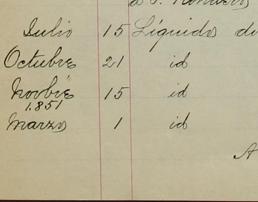 Julio 15 Líquido
Octubre 21 id
Novbre 15 id
1.851
Marzo 1 id
A